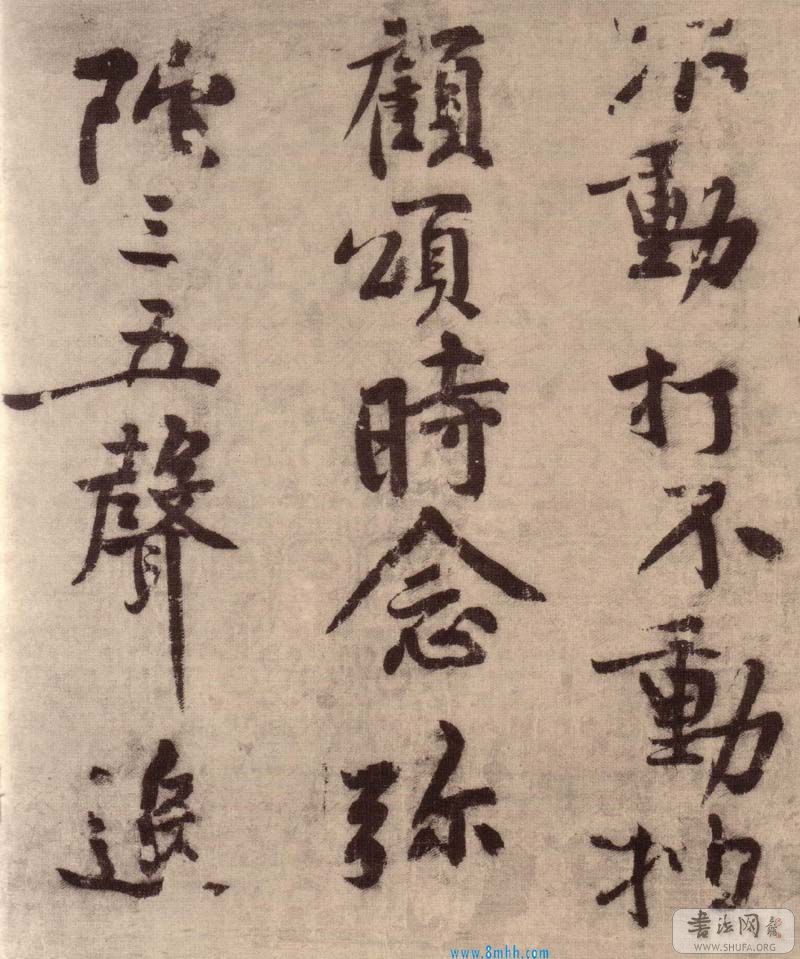 動打不動
顧頌時念弥
陀三五聲
书法网
WWW.SHUFA.ORG
www.8mhh.com